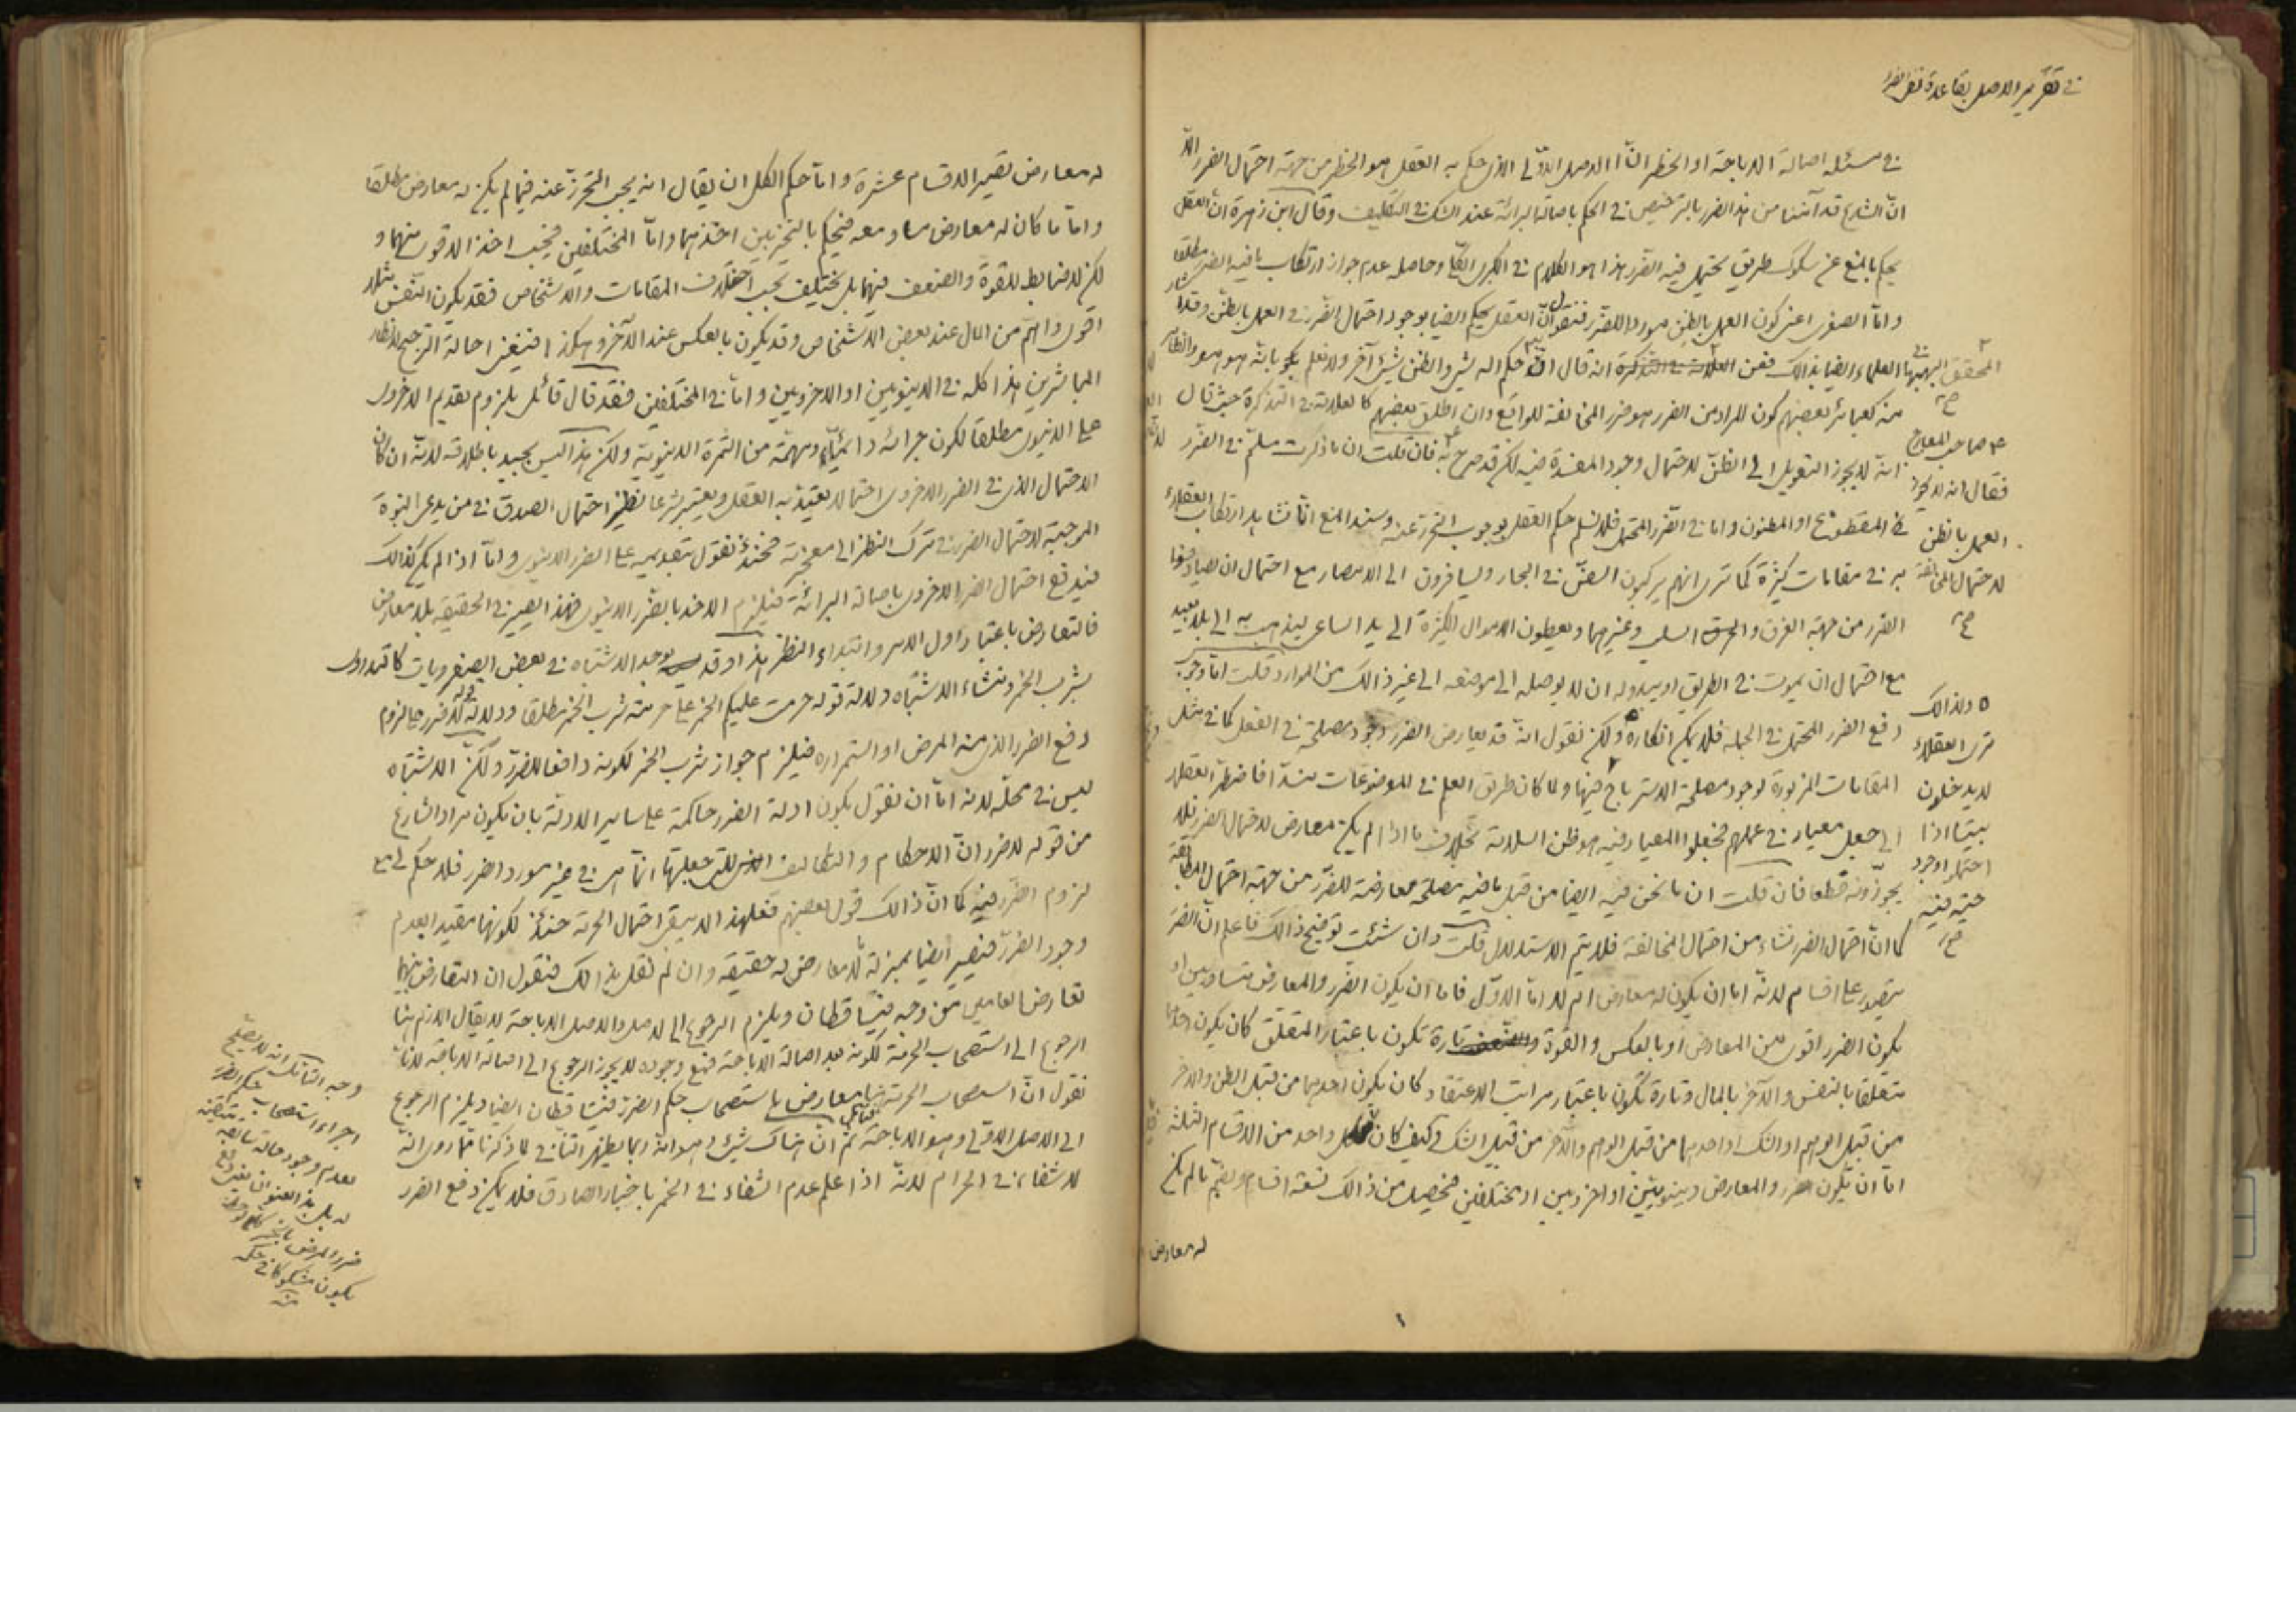 في تقرير الاصل بقاعدة نفي الضرر
في مسئلة اصالة الاباحة او الحظر انّ الاصل الاوّلى الذى حكم به العقل هو الحظر من جهة احتمال الضرر الّا
انّ الشارع قد آمننا من هذا الضرر بالترخيص في الحكم باصالة البرائة عند الشك في التكليف وقال ابن زهرة انّ العقل
يحكم بالمنع عن سلوك طريق يحتمل فيه الضرر هذا هو الكلام في الكبرى الكلّى وحاصله عدم جواز ارتكاب ما فيه الضرر مطلقا
وامّا الصغرى اعنى كون العمل بالظن موردا للضرر فنقول انّ العقل يحكم ايضا بوجود احتمال الضرر في العمل بالظنّ وقد
العلماء ايضا بذالك فعن انه قال انّ حكم اله شئ والظن شئ آخر ولا نعلم بانّه هو هو والظاهر
منه كغيره بعضهم كون المراد من الضرر هو ضرر المخالفة للواقع وان اطلق بعضهم كالعلامة في التذكرة حيث قال
انّه لا يجوز التعويل الى الظنّ لاحتمال وجود المفسدة فيه لكن قد صرح به فان قلت ان ما ذكرت مسلّم في الضرر
المقطوع او المظنون واما في الضرر المحتمل فلا نسلم حكم العقل بوجوب التحرز عنه وسند المنع انّا نشاهد ارتكاب العقلاء
به في مقامات كثيرة كما ترى انهم يركبون السفن في البحار ويسافرون الى الامصار مع احتمال ان يصادفوا
الضرر من جهة الغرق والسلب وغيرهما ويعطون الاموال الكثيرة الى يد الساعى ليذهب به الى بلد بعيد
مع احتمال ان يموت في الطريق او يبدو له ان لا يوصله الى موضعه الى غير ذالك من الموارد قلت امّا وجوب
دفع الضرر المحتمل في الجملة فلا يمكن انكاره ولكن نقول انّه قد يعارض الضرر وجود مصلحة في الفعل كما في مثل
المقامات المزبورة لوجود مصلحة الاسترباح فيها ولما كان طريق العلم في الموضوعات منسدّا فاضطر العقلاء
الى جعل معيار في عملهم فجعلوا المعيار فيه هو ظن السلامة بخلاف ما اذا لم يكن معارض لاحتمال الضرر فلا
يجوّزونه قطعا فان قلت ان ما نحن فيه ايضا من قبيل ما فيه مصلحة معارضة للضرر من جهة احتمال المطابقة
كما انّ احتمال الضرر نشاء من احتمال المخالفة فلا يتم الاستدلال قلت وان شئت توضيح ذالك فاعلم انّ الضرر
يتصور على اقسام لانّه اما ان يكون له معارض ام لا امّا الاوّل فاما ان يكون الضرر والمعارض متساويين او
يكون الضرر اقوى من المعارض او بالعكس والقوة والضعف تارة تكون باعتبار المتعلّق كان يكون احدهما
متعلقا بالنفس والآخر بالمال وتارة تكون باعتبار مراتب الاعتقاد كان يكون احدهما من قبيل الظن والاخر
من قبيل الوهم او الشك او احدهما من قبيل الوهم والآخر من قبيل الشك وكيف كان فكل واحد من الاقسام الثلثة
امّا ان يكون الضرر والمعارض دنيويّين او اخرويين او مختلفين فيحصل من ذالك تسعة اقسام ويضمّ ما لم يكن
له معارض
المحقق
صاحب المعارج
فقال انه لا يجوز
العمل بالظن
لاحتمال المخالفة
ولذالك
ترى العقلاء
لا يدخلون
بيتا اذا
احتملوا وجود
حيّة فيه
له معارض تصير الاقسام عشرة وامّا حكم الكل ان يقال انه يجب التحرز عنه فيما لم يكن له معارض مطلقا
وامّا ما كان له معارض مساو معه فيحكم بالتخيير بين اخذهما وامّا المختلفين فيجب اخذ الاقوى منهما و
لكن لا ضابط للقوة والضعف فيهما بل يختلف بحسب اختلاف المقامات والاشخاص فقد يكون النفس مثلا
اقوى واهمّ من المال عند بعض الاشخاص وقد يكون بالعكس عند الآخر وهكذا فينبغى احالة الترجيح لانظار
المباشرين هذا كله في الدنيويين او الاخرويين وامّا في المختلفين فقد قال قائل بلزوم تقديم الاخروى
على الدنيوى مطلقا لكون جزائه دائميّا ومهمّة من الثمرة الدنيوية ولكن هذا ليس بجيد باطلاقه لانّه ان كان
الاحتمال الذى في الضرر الاخروى احتمالا يعتدّ به العقل ويعتبر شرعا نظير احتمال الصدق في من يدعى النبوة
الموجبة لاحتمال الضرر في ترك النظر الى معجزته فحينئذ نقول بتقديمه على الضرر الدنيوى وامّا اذا لم يكن كذالك
فيدفع احتمال الضرر الاخروى باصالة البرائة فيلزم الاخذ بالضرر الدنيوى فهذا يصير في الحقيقة بلا معارض
فالتعارض باعتبار اول الامر وابتداء النظر هذا وقد يوجد الاشتباه في بعض الصغرويات كالتداوى
بشرب الخمر ومنشاء الاشتباه دلالة قوله حرمت عليكم الخمر على حرمة شرب الخمر مطلقا ودلالة قوله لا ضرر على لزوم
دفع الضرر الذى منه المرض او استمراره فيلزم جواز شرب الخمر لكونه دافعا للضرر ولكن الاشتباه
ليس في محلّه لانه امّا ان نقول بكون ادلة الضرر حاكمة على ساير الادلّة بان يكون مراد الشارع
من قوله لا ضرر انّ الاحكام والتكاليف التى جعلتها انّما هى في غير مورد الضرر فلا حكم لى مع
لزوم الضرر فيه كما انّ ذالك قول بعضهم فعلى هذا لا يبقى احتمال الحرمة حينئذ لكونها مقيدا بعدم
وجود الضرر فيصير ايضا بمنزلة لا معارض له حقيقة وان لم نقل بذالك فنقول ان التعارض بينهما
تعارض العامين من وجه فيتساقطان ويلزم الرجوع الى الاصل والاصل الاباحة لا يقال اللازم هنا
الرجوع الى استصحاب الحرمة لكونه بعد اصالة الاباحة فمع وجوده لا يجوز الرجوع الى اصالة الاباحة لانّا
نقول انّ استصحاب الحرمة هنا معارض باستصحاب حكم الضرر فيتساقطان ايضا ويلزم الرجوع
الى الاصل الاوّلى وهو الاباحة ثم انّ هناك شئ وهو انّه ربما يظهر التنافى لما ذكرنا ممّا روى انّه
لا شفاء في الحرام لانّه اذا علم عدم الشفاء في الخمر باخبار الصادق فلا يمكن دفع الضرر
انه لا يصح
اجراء استصحاب حكم الضرر
لعدم وجود حالة سابقة
له بل هذا العنوان
ضرر المرض
يكون مشكوكا في